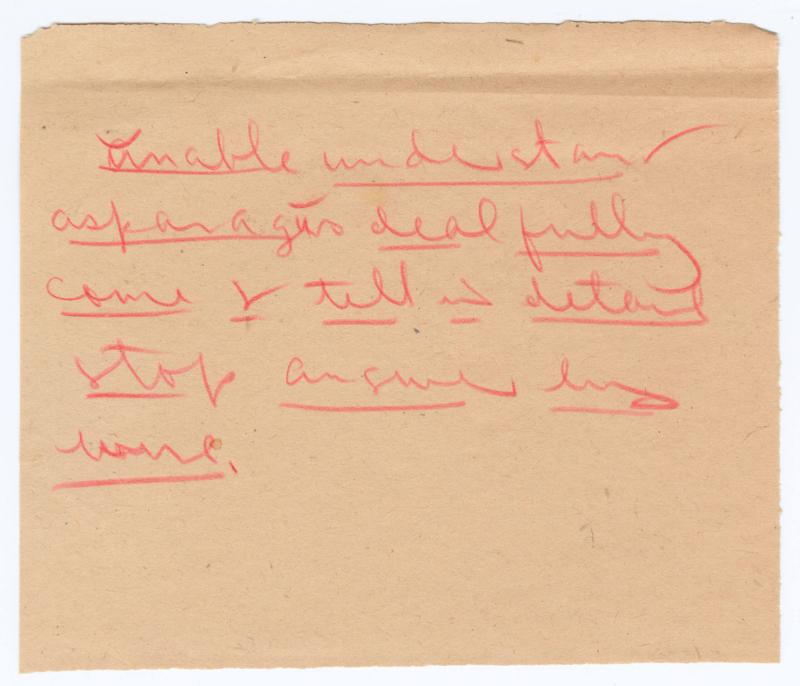 Unable understand
asparagus deal fully
come & tell in detail
stop answer by
wire.